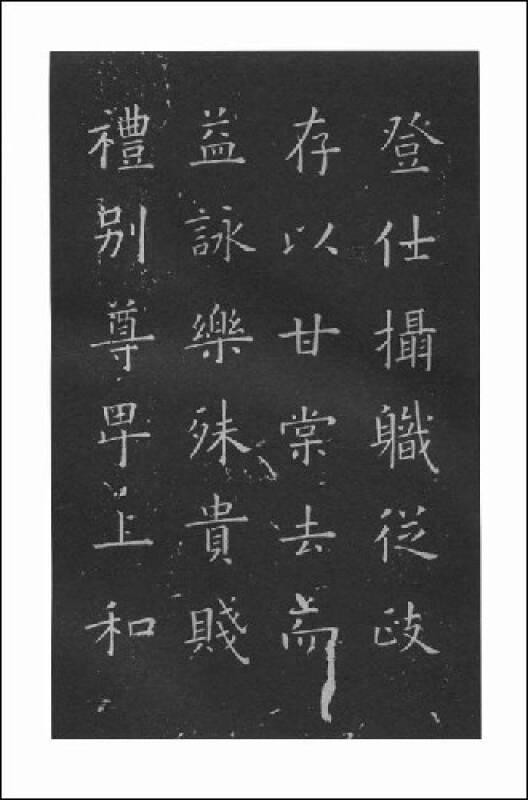 登仕攝軄從政
存以甘棠去而
益詠樂殊貴賤
禮别尊卑上和